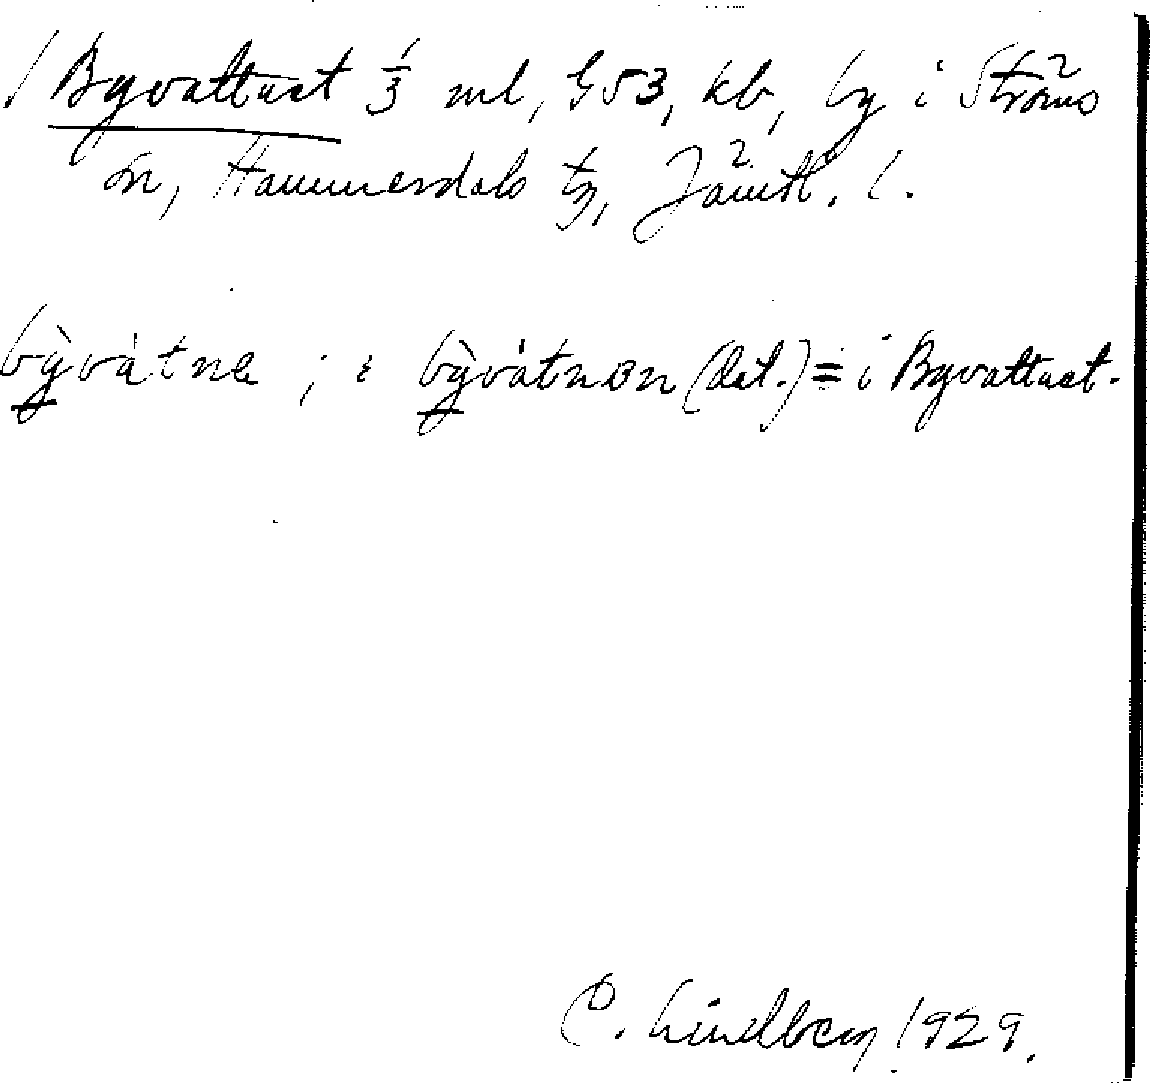 / Byvattnet 1/3 ml, G53, kb, by i Ströms
sn, Hammerdals tg, Jämtl. l.
bỳ̠vátne ; i bỳ̠vátnon (dat.) = i Byvattnet.
C. Lindberg 1929.